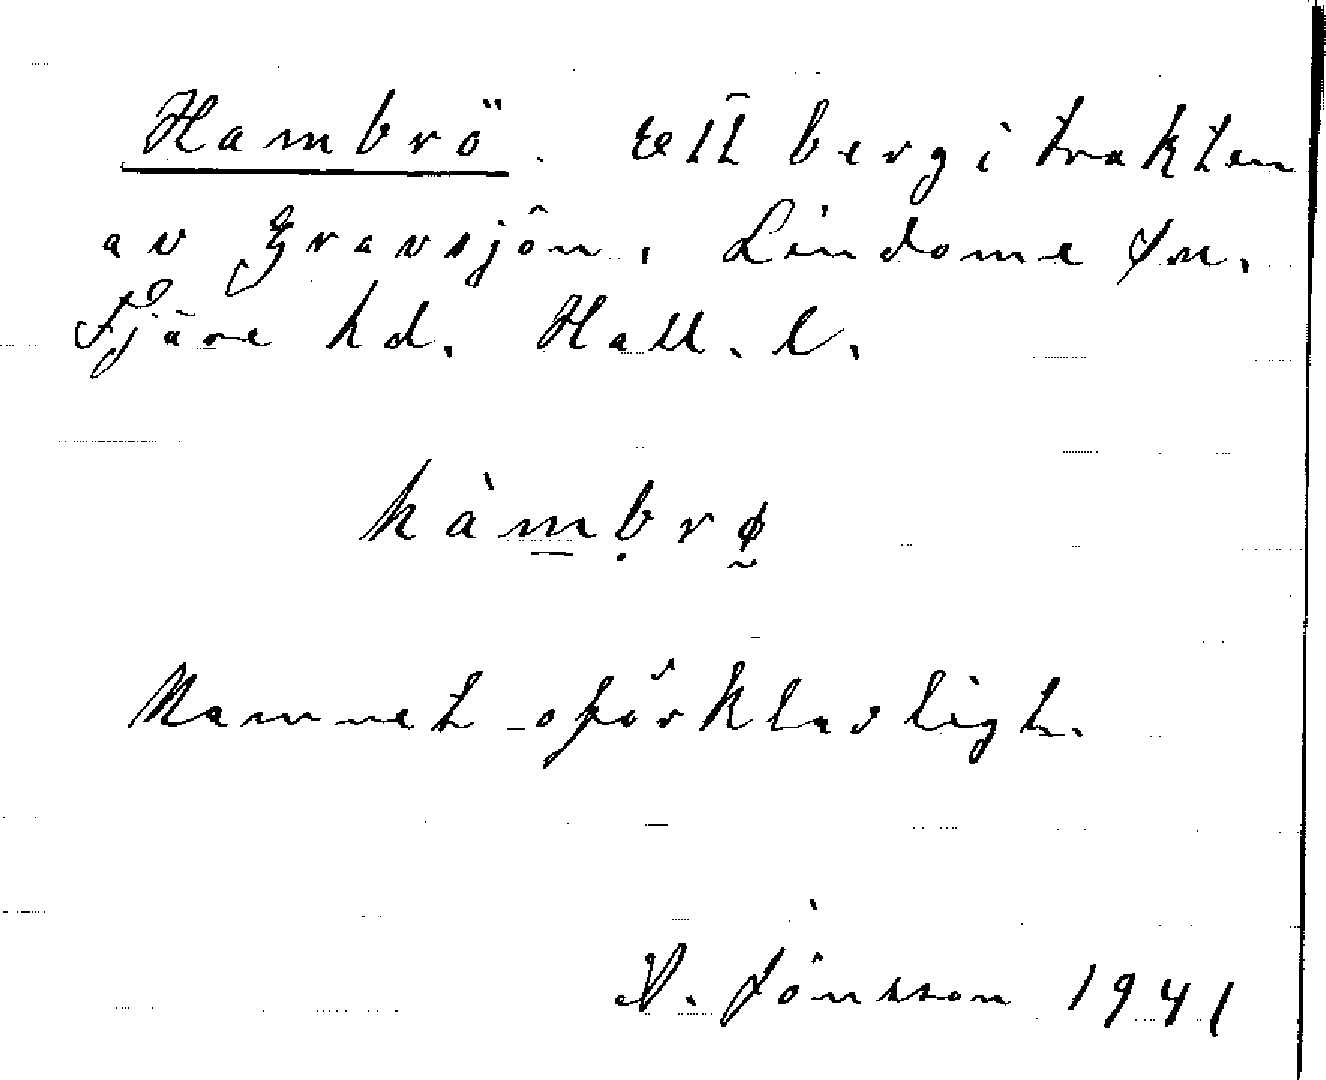 Hambrö. Ett berg i trakten
av Gravsjön, Lindome sn.
Fjäre hd. Hall. l.
hàmbrø
Namnet oförklarligt.
Jönsson 1941